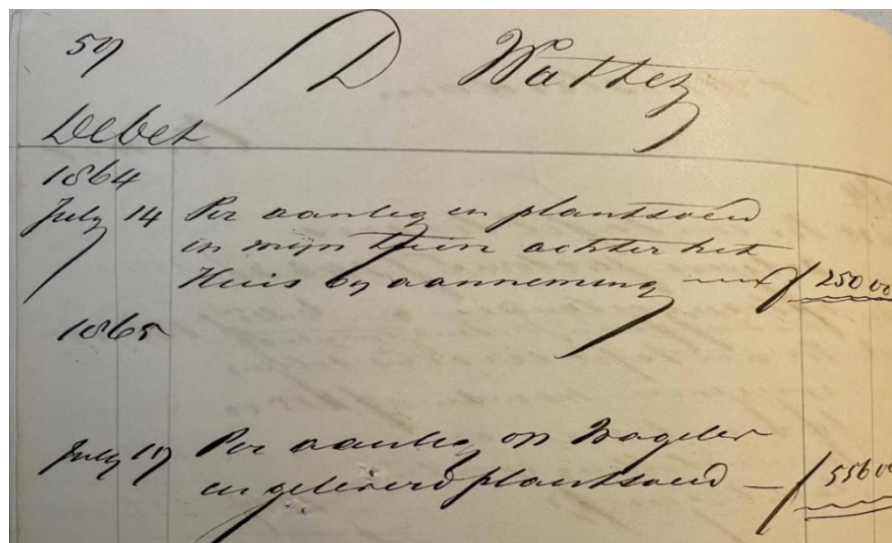 59
D Wattez
Debet
1864
July 14 Per aanleg en plantsoen
in mijn tuin achter het
Huis by aanneming f 250 00
1865
July 17 Per aanleg op Bageler
en geleverd plantsoen — f 556 00